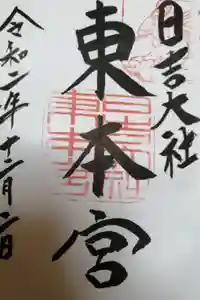 日吉大社
東本宮
令和二年十二月二日